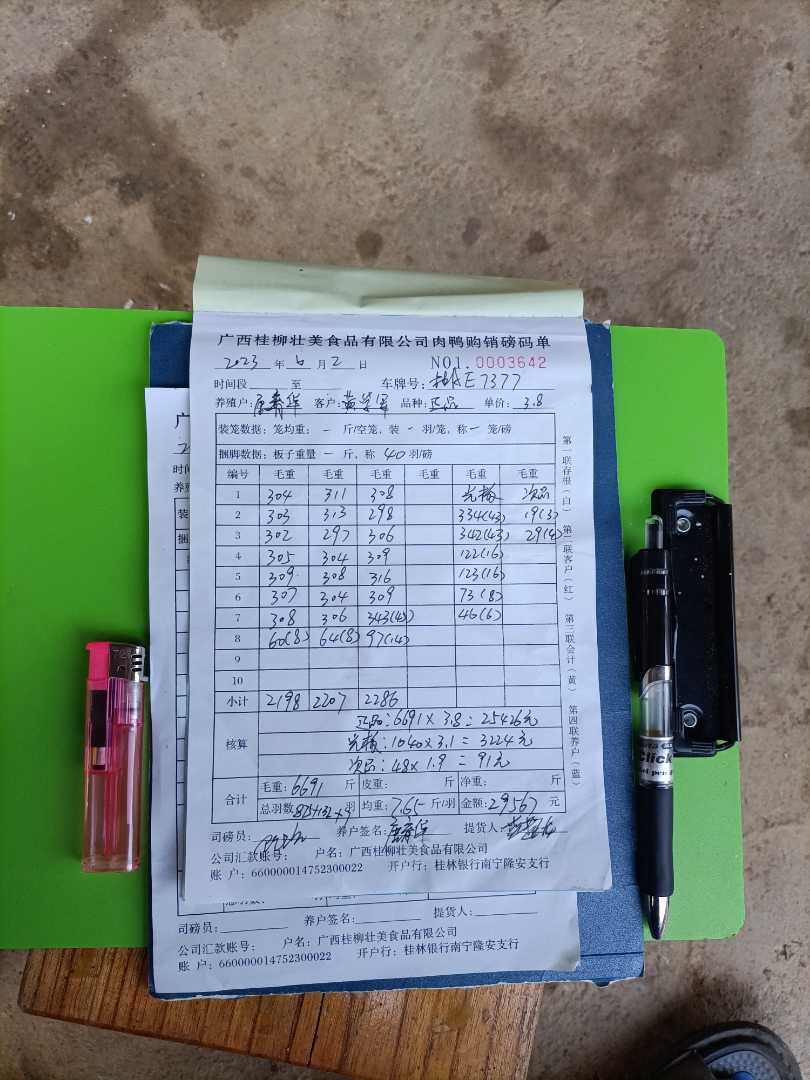 广西桂柳壮美食品有限公司肉鸭购销磅码单
2023 年 6 月 2 日 NO1. 0003642
时间段 至 车牌号: E7377
养殖户: 客户: 品种: 正品 单价: 3.8
装笼数据: 笼均重: 一 斤/空笼, 装 一 羽/笼, 称 一 笼/磅
捆脚数据: 板子重量 一 斤, 称 40 羽/磅
编号 毛重 毛重 毛重 毛重 毛重 毛重
1 304 311 308 次品
2 303 313 298 334(43) 19(3)
3 302 297 306 342(43) 29(4)
4 305 304 309 122(16)
5 309 308 316 123(16)
6 307 304 309 73(8)
7 308 306 343(45) 46(6)
8 60(8) 64(8) 97(14)
9
10
小计 2198 2207 2286
核算 正品: 6691 × 3.8 = 25426元
1040 × 3.1 = 3224元
次品: 48 × 1.9 = 91元
合计 毛重: 6691 斤 皮重: 斤 净重: 斤
总羽数 羽 均重: 7.65 斤/羽 金额: 29567 元
司磅员: 养户签名: 提货人:
公司汇款账号: 户名: 广西桂柳壮美食品有限公司
账 户: 660000014752300022 开户行: 桂林银行南宁隆安支行
第一联存根(白) 第二联客户(红) 第三联会计(黄) 第四联养户(蓝)
司磅员: 养户签名: 提货人:
公司汇款账号: 户名: 广西桂柳壮美食品有限公司
账 户: 660000014752300022 开户行: 桂林银行南宁隆安支行
Click